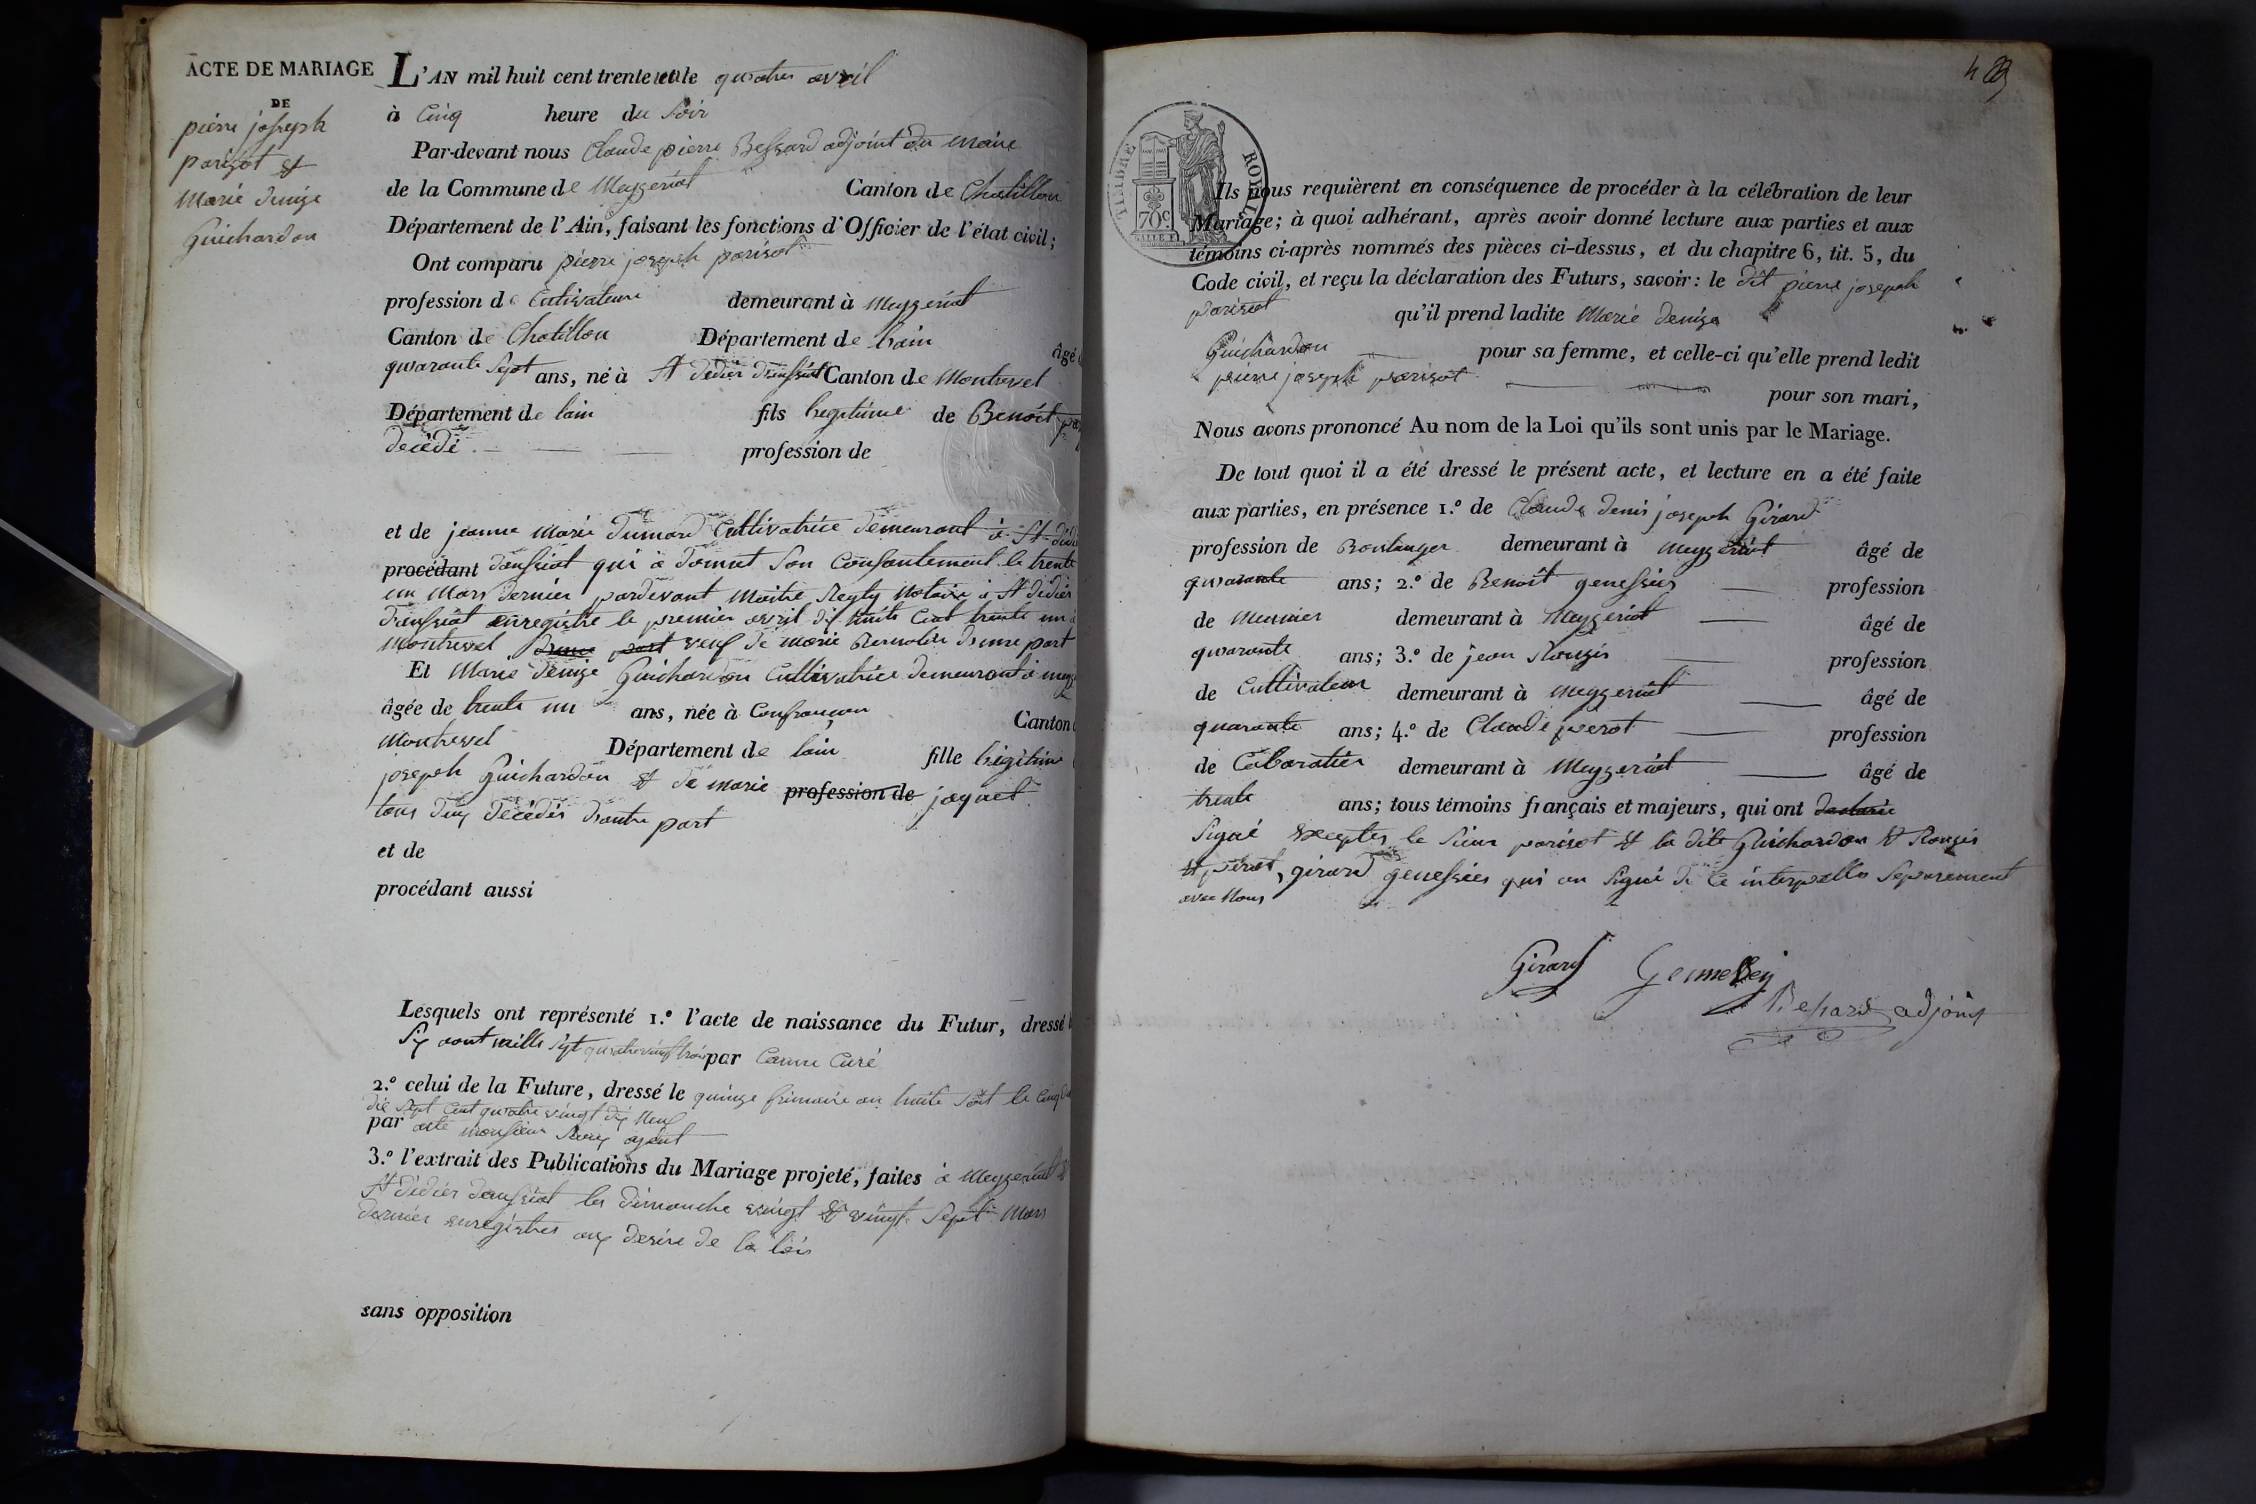 ACTE DE MARIAGE
DE
pierre joseph
parizot et
Marie denize
Guichardon
L'AN mil huit cent trente et le quatre avril
à Cinq heure du Soir
Par-devant nous Claude pierre Bessard adjoint du maire
de la Commune de Meyzeriat Canton de Chatillon
Département de l'Ain, faisant les fonctions d'Officier de l'état civil;
Ont comparu pierre joseph parisot
profession de Cultivateur demeurant à Meyzeriat
Canton de Chatillon Département de lain âgé
quarante Sept ans, né à St didier d'aussiat Canton de Montrevel
Département de lain fils legitime de Benoit
decédé profession de
et de jeanne Marie dumard Cultivatrice demeurant à St
procédant daussiat qui à donnet Son Consantement le trente
un Mars dernier pardevant Maitre Notaire à St didier
daussiat enregistre le premier avril dix huits Cent trente un à
Montrevel d'une part veuf de Marie d'une part
Et Marie denize Guichardon Cultivatrice demeurant à
âgée de trente un ans, née à Confrançon Canton
Montrevel Département de lain fille legitime
joseph Guichardon & de marie profession de jaquet
tous deux decédés d'autre part
et de
procédant aussi
Lesquels ont représenté 1.º l'acte de naissance du Futur, dressé
Six aout mille sept quatrevingt trois par Curé
2.º celui de la Future, dressé le quinze frimaire an huite Soit le Cinq
dix Sept Cent quatre vingt dix Neuf
par acte monsieur agent
3.º l'extrait des Publications du Mariage projeté, faites à Meyzeriat &
St didier daussiat les dimanche vingt & vingt Sept Mars
dernier enregistres aux desire de la lois
sans opposition
4
TIMBRE ROYAL
70c.
Ils nous requièrent en conséquence de procéder à la célébration de leur
Mariage; à quoi adhérant, après avoir donné lecture aux parties et aux
témoins ci-après nommés des pièces ci-dessus, et du chapitre 6, tit. 5, du
Code civil, et reçu la déclaration des Futurs, savoir: le dit pierre joseph
parisot qu'il prend ladite Marie denize
Guichardon pour sa femme, et celle-ci qu'elle prend ledit
pierre joseph parisot
pour son mari,
Nous avons prononcé Au nom de la Loi qu'ils sont unis par le Mariage.
De tout quoi il a été dressé le présent acte, et lecture en a été faite
aux parties, en présence 1.º de Claude denis joseph Girard
profession de Boulanger demeurant à Meyzeriat âgé de
quarante ans; 2.º de Benoît genessies profession
de Meunier demeurant à Meyzeriat âgé de
quarante ans; 3.º de jean Rougis profession
de Cultivateur demeurant à Meyzeriat âgé de
quarante ans; 4.º de Claude perot profession
de Cabaratier demeurant à Meyzeriat âgé de
trente ans; tous témoins français et majeurs, qui ont declarée
Signé exceptes le Sieur parisot & la dite Guichardon & Rougis
& perot, girard genessies qui on Signé de Ce interpelles Separement
avec Nous
Girard
adjoint